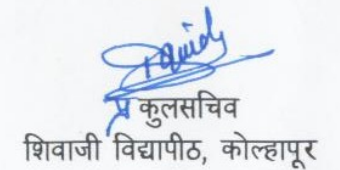 प्र कुलसचिव
शिवाजी विद्यापीठ, कोल्हापूर